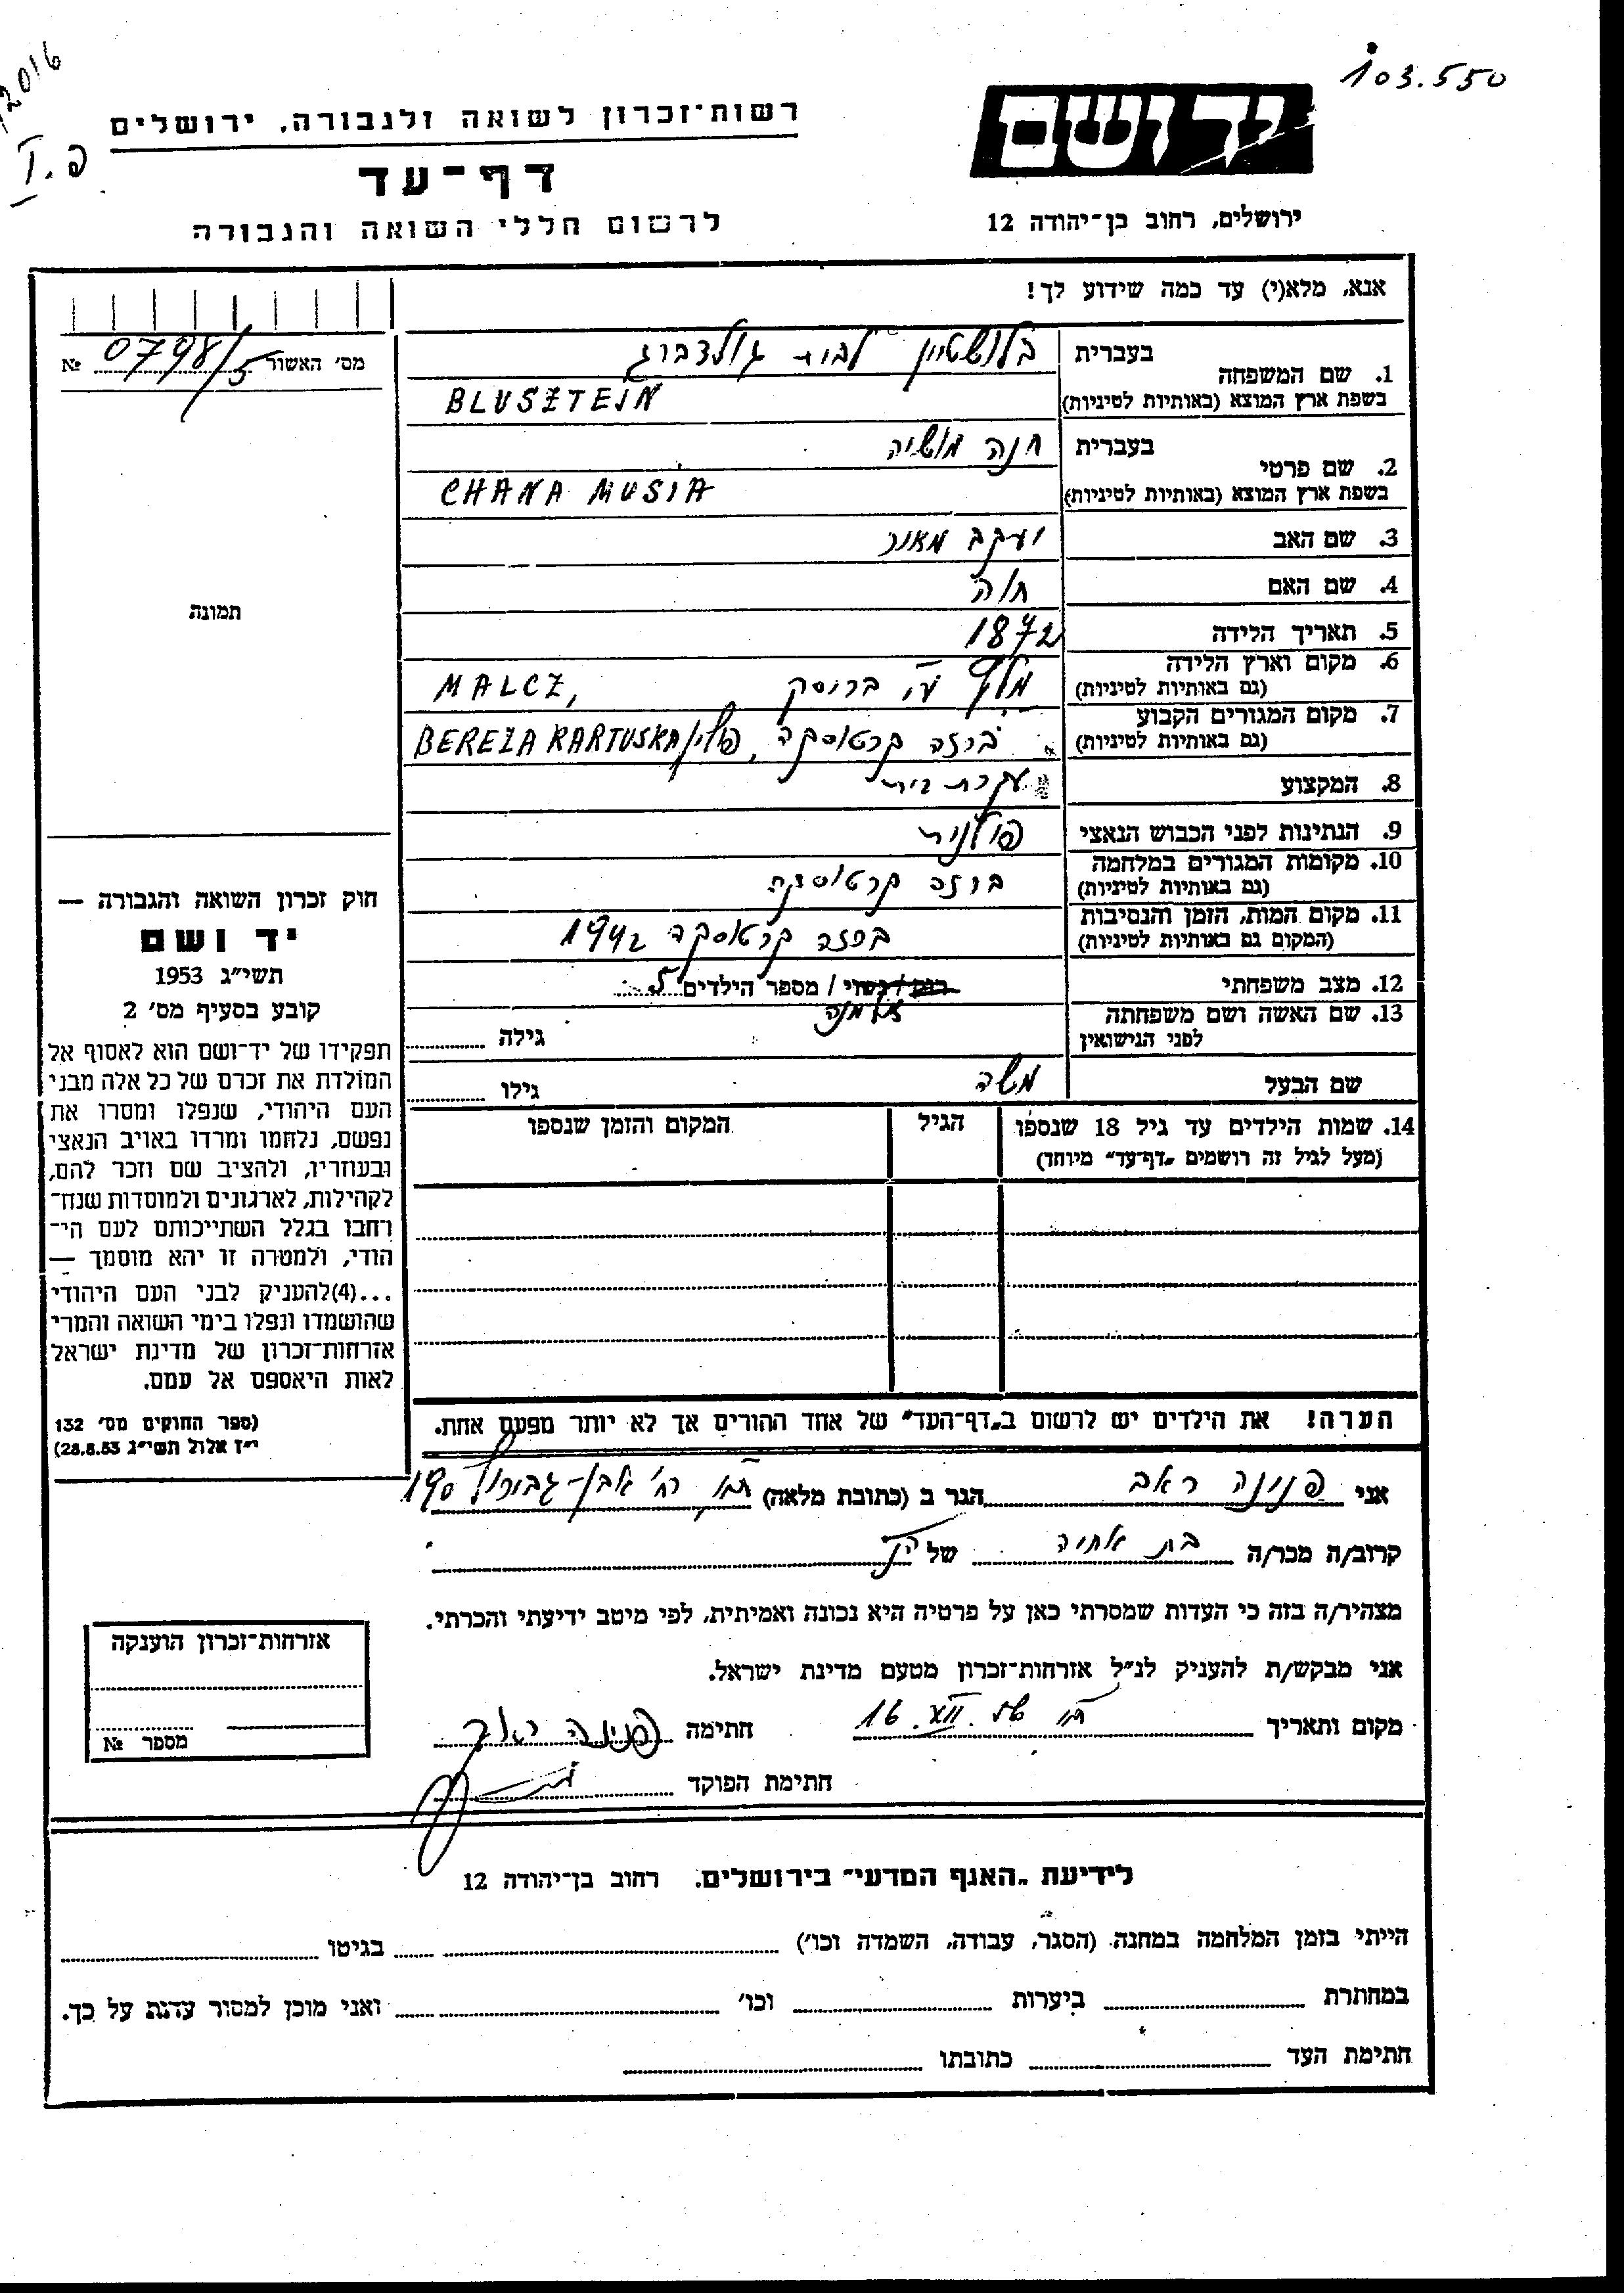 103.550
2016
פ. I
יד ושם
ירושלים, רחוב בן־יהודה 12
רשות־זכרון לשואה ולגבורה, ירושלים
דף־עד
לרשום חללי השואה והגבורה
אנא, מלא(י) עד כמה שידוע לך!
מס׳ האשור 0798/5 №
1. שם המשפחה
בעברית בלושטיין לבית גולדברג
בשפת ארץ המוצא (באותיות לטיניות) BLUSZTEJN
2. שם פרטי
בעברית חנה מושיה
בשפת ארץ המוצא (באותיות לטיניות) CHANA MUSIA
3. שם האב יעקב מאיר
4. שם האם חוה
5. תאריך הלידה 1872
6. מקום וארץ הלידה
(גם באותיות לטיניות) MALCZ,
7. מקום המגורים הקבוע
(גם באותיות לטיניות) ברזה קרטוסקה, פולין BEREZA KARTUSKA
8. המקצוע עקרת בית
9. הנתינות לפני הכבוש הנאצי פולנית
10. מקומות המגורים במלחמה
(גם באותיות לטיניות) ברזה קרטוסקה
11. מקום המות, הזמן והנסיבות
(המקום גם באותיות לטיניות) ברזה קרטוסקה 1942
12. מצב משפחתי רווק / נשוי / מספר הילדים 5
אלמנה
13. שם האשה ושם משפחתה
לפני הנישואין גילה
שם הבעל משה גילו
14. שמות הילדים עד גיל 18 שנספו
(מעל לגיל זה רושמים „דף־עד״ מיוחד)
הגיל
המקום והזמן שנספו
תמונה
חוק זכרון השואה והגבורה —
יד ושם
תשי״ג 1953
קובע בסעיף מס׳ 2
תפקידו של יד־ושם הוא לאסוף אל
המולדת את זכרם של כל אלה מבני
העם היהודי, שנפלו ומסרו את
נפשם, נלחמו ומרדו באויב הנאצי
ובעוזריו, ולהציב שם וזכר להם,
לקהילות, לארגונים ולמוסדות שנח־
רחבו בגלל השתייכותם לעם הי־
הודי, ולמטרה זו יהא מוסמך —
...(4)להעניק לבני העם היהודי
שהושמדו ונפלו בימי השואה והמרי
אזרחות־זכרון של מדינת ישראל
לאות היאספם אל עמם.
(ספר החוקים מס׳ 132
י״ז אלול תשי״ג 28.8.53)
הערה! את הילדים יש לרשום ב„דף־העד״ של אחד ההורים אך לא יותר מפעם אחת.
אני פנינה ראב הגר ב (כתובת מלאה) ת״א, רח׳ אבן־גבירול 190
קרוב/ה מכר/ה בת אחיה של הנ״ל
מצהיר/ה בזה כי העדות שמסרתי כאן על פרטיה היא נכונה ואמיתית, לפי מיטב ידיעתי והכרתי.
אני מבקש/ת להעניק לנ״ל אזרחות־זכרון מטעם מדינת ישראל.
מקום ותאריך ת״א 16.XII.56 חתימה פנינה ראב
חתימת הפוקד
אזרחות־זכרון הוענקה
מספר №
לידיעת „האגף המדעי״ בירושלים. רחוב בן־יהודה 12
הייתי בזמן המלחמה במחנה (הסגר, עבודה, השמדה וכו׳) בגיטו
במחתרת ביערות וכו׳ ואני מוכן למסור עדות על כך.
חתימת העד כתובתו